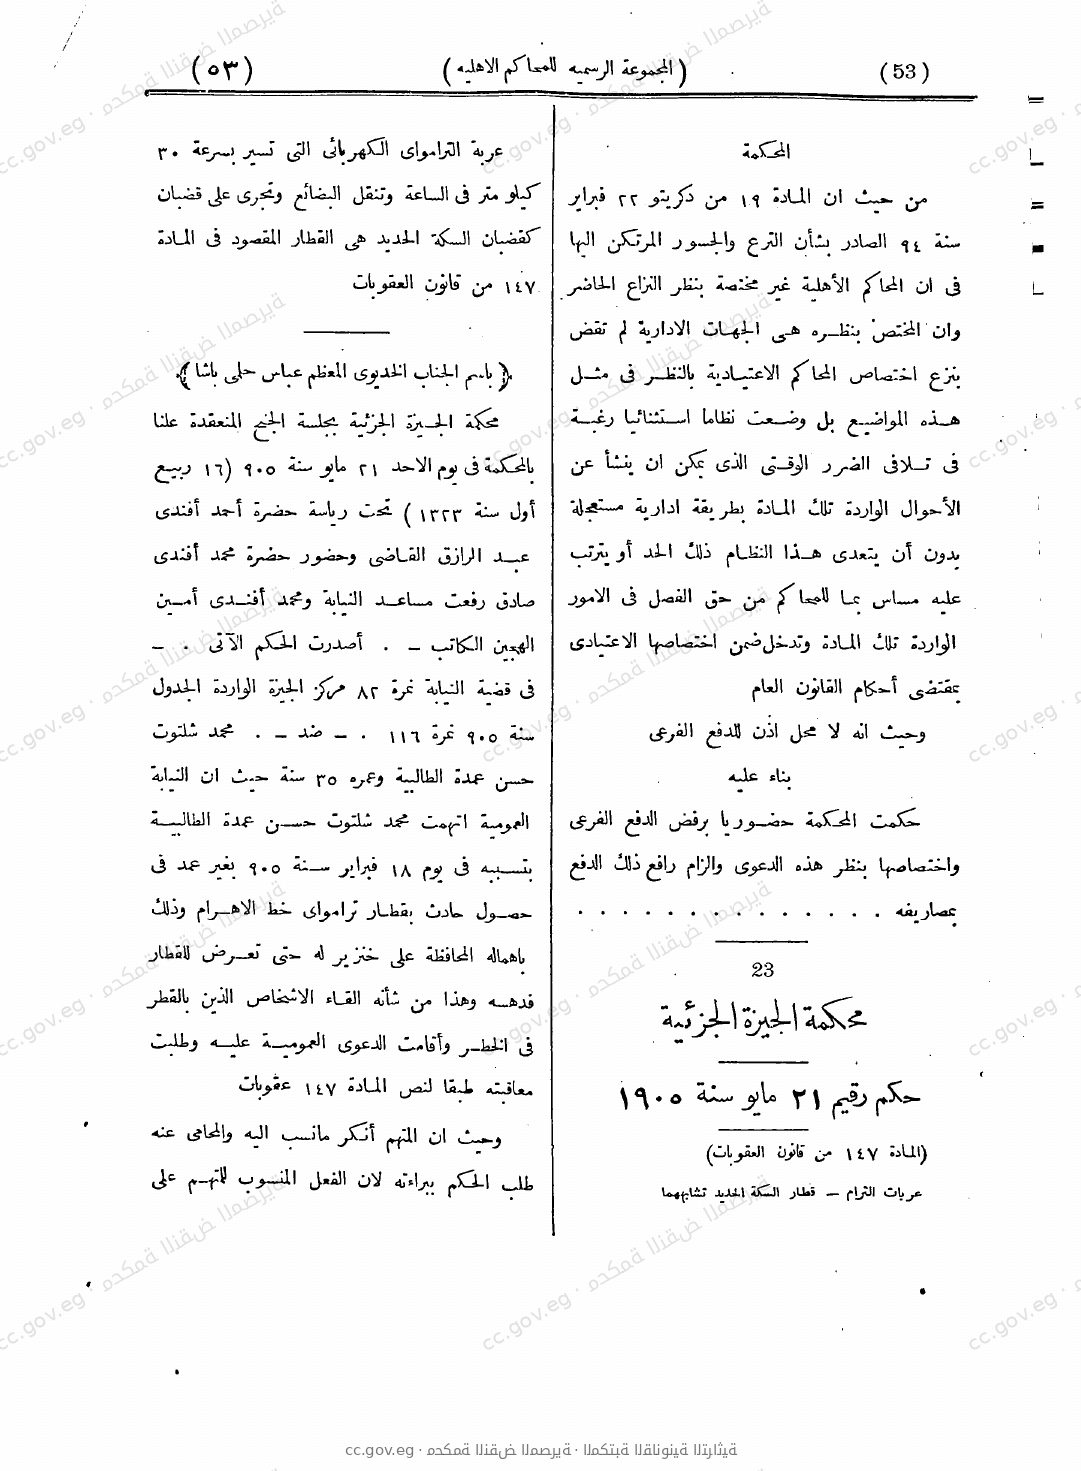 (53)
(المجموعة الرسمية للمحاكم الاهلية)
(٥٣)
المحكمة
من حيث ان المادة ١٩ من دكريتو ٢٢ فبراير
سنة ٩٤ الصادر بشأن الترع والجسور المرتكن اليها
فى ان المحاكم الأهلية غير مختصة بنظر النزاع الحاضر
وان المختص بنظره هى الجهات الادارية لم تقض
بنزع اختصاص المحاكم الاعتيادية بالنظر فى مثل
هذه المواضيع بل وضعت نظاما استثنائيا رغبة
فى تلافى الضرر الوقتى الذى يمكن ان ينشأ عن
الأحوال الواردة تلك المادة بطريقة ادارية مستعجلة
بدون أن يتعدى هذا النظام ذلك الحد أو يترتب
عليه مساس بما للمحاكم من حق الفصل فى الامور
الواردة تلك المادة وتدخل ضمن اختصاصها الاعتيادى
بمقتضى أحكام القانون العام
وحيث انه لا محل اذن للدفع الفرعى
بناء عليه
حكمت المحكمة حضوريا برفض الدفع الفرعى
واختصاصها بنظر هذه الدعوى والزام رافع ذلك الدفع
بمصاريفه . . . . . . . . . . . . . .
23
محكمة الجيزة الجزئية
حكم رقيم ٢١ مايو سنة ١٩٠٥
(المادة ١٤٧ من قانون العقوبات)
عربات الترام — قطار السكة الحديد تشابههما
عربة التراموای الكهربائى التى تسير بسرعة ٣٠
كيلو متر فى الساعة وتنقل البضائع وتجرى على قضبان
كقضبان السكة الحديد هى القطار المقصود فى المادة
١٤٧ من قانون العقوبات
﴿ باسم الجناب الخديوى المعظم عباس حلمى باشا ﴾
محكمة الجيزة الجزئية بجلسة الجنح المنعقدة علنا
بالمحكمة فى يوم الاحد ٢١ مايو سنة ٩٠٥ (١٦ ربيع
أول سنة ١٣٢٣) تحت رياسة حضرة أحمد أفندى
عبد الرازق القاضى وحضور حضرة محمد أفندى
صادق رفعت مساعد النيابة ومحمد أفندى أمين
الهجين الكاتب — . أصدرت الحكم الآتى . —
فى قضية النيابة نمرة ٨٢ مركز الجيزة الواردة الجدول
سنة ٩٠٥ نمرة ١١٦ . — ضد — . محمد شلتوت
حسن عمدة الطالبية وعمره ٣٥ سنة حيث ان النيابة
العمومية اتهمت محمد شلتوت حسن عمدة الطالبية
بتسببه فى يوم ١٨ فبراير سنة ٩٠٥ بغير عمد فى
حصول حادث بقطار تراموای خط الاهرام وذلك
باهماله المحافظة على خنزير له حتى تعرض للقطار
فدهسه وهذا من شأنه القاء الاشخاص الذين بالقطر
فى الخطر وأقامت الدعوى العمومية عليه وطلبت
معاقبته طبقا لنص المادة ١٤٧ عقوبات
وحيث ان المتهم أنكر مانسب اليه والمحامى عنه
طلب الحكم ببراءته لان الفعل المنسوب للمتهم على
cc.gov.eg · محكمة النقض المصرية · المكتبة القانونية التراثية